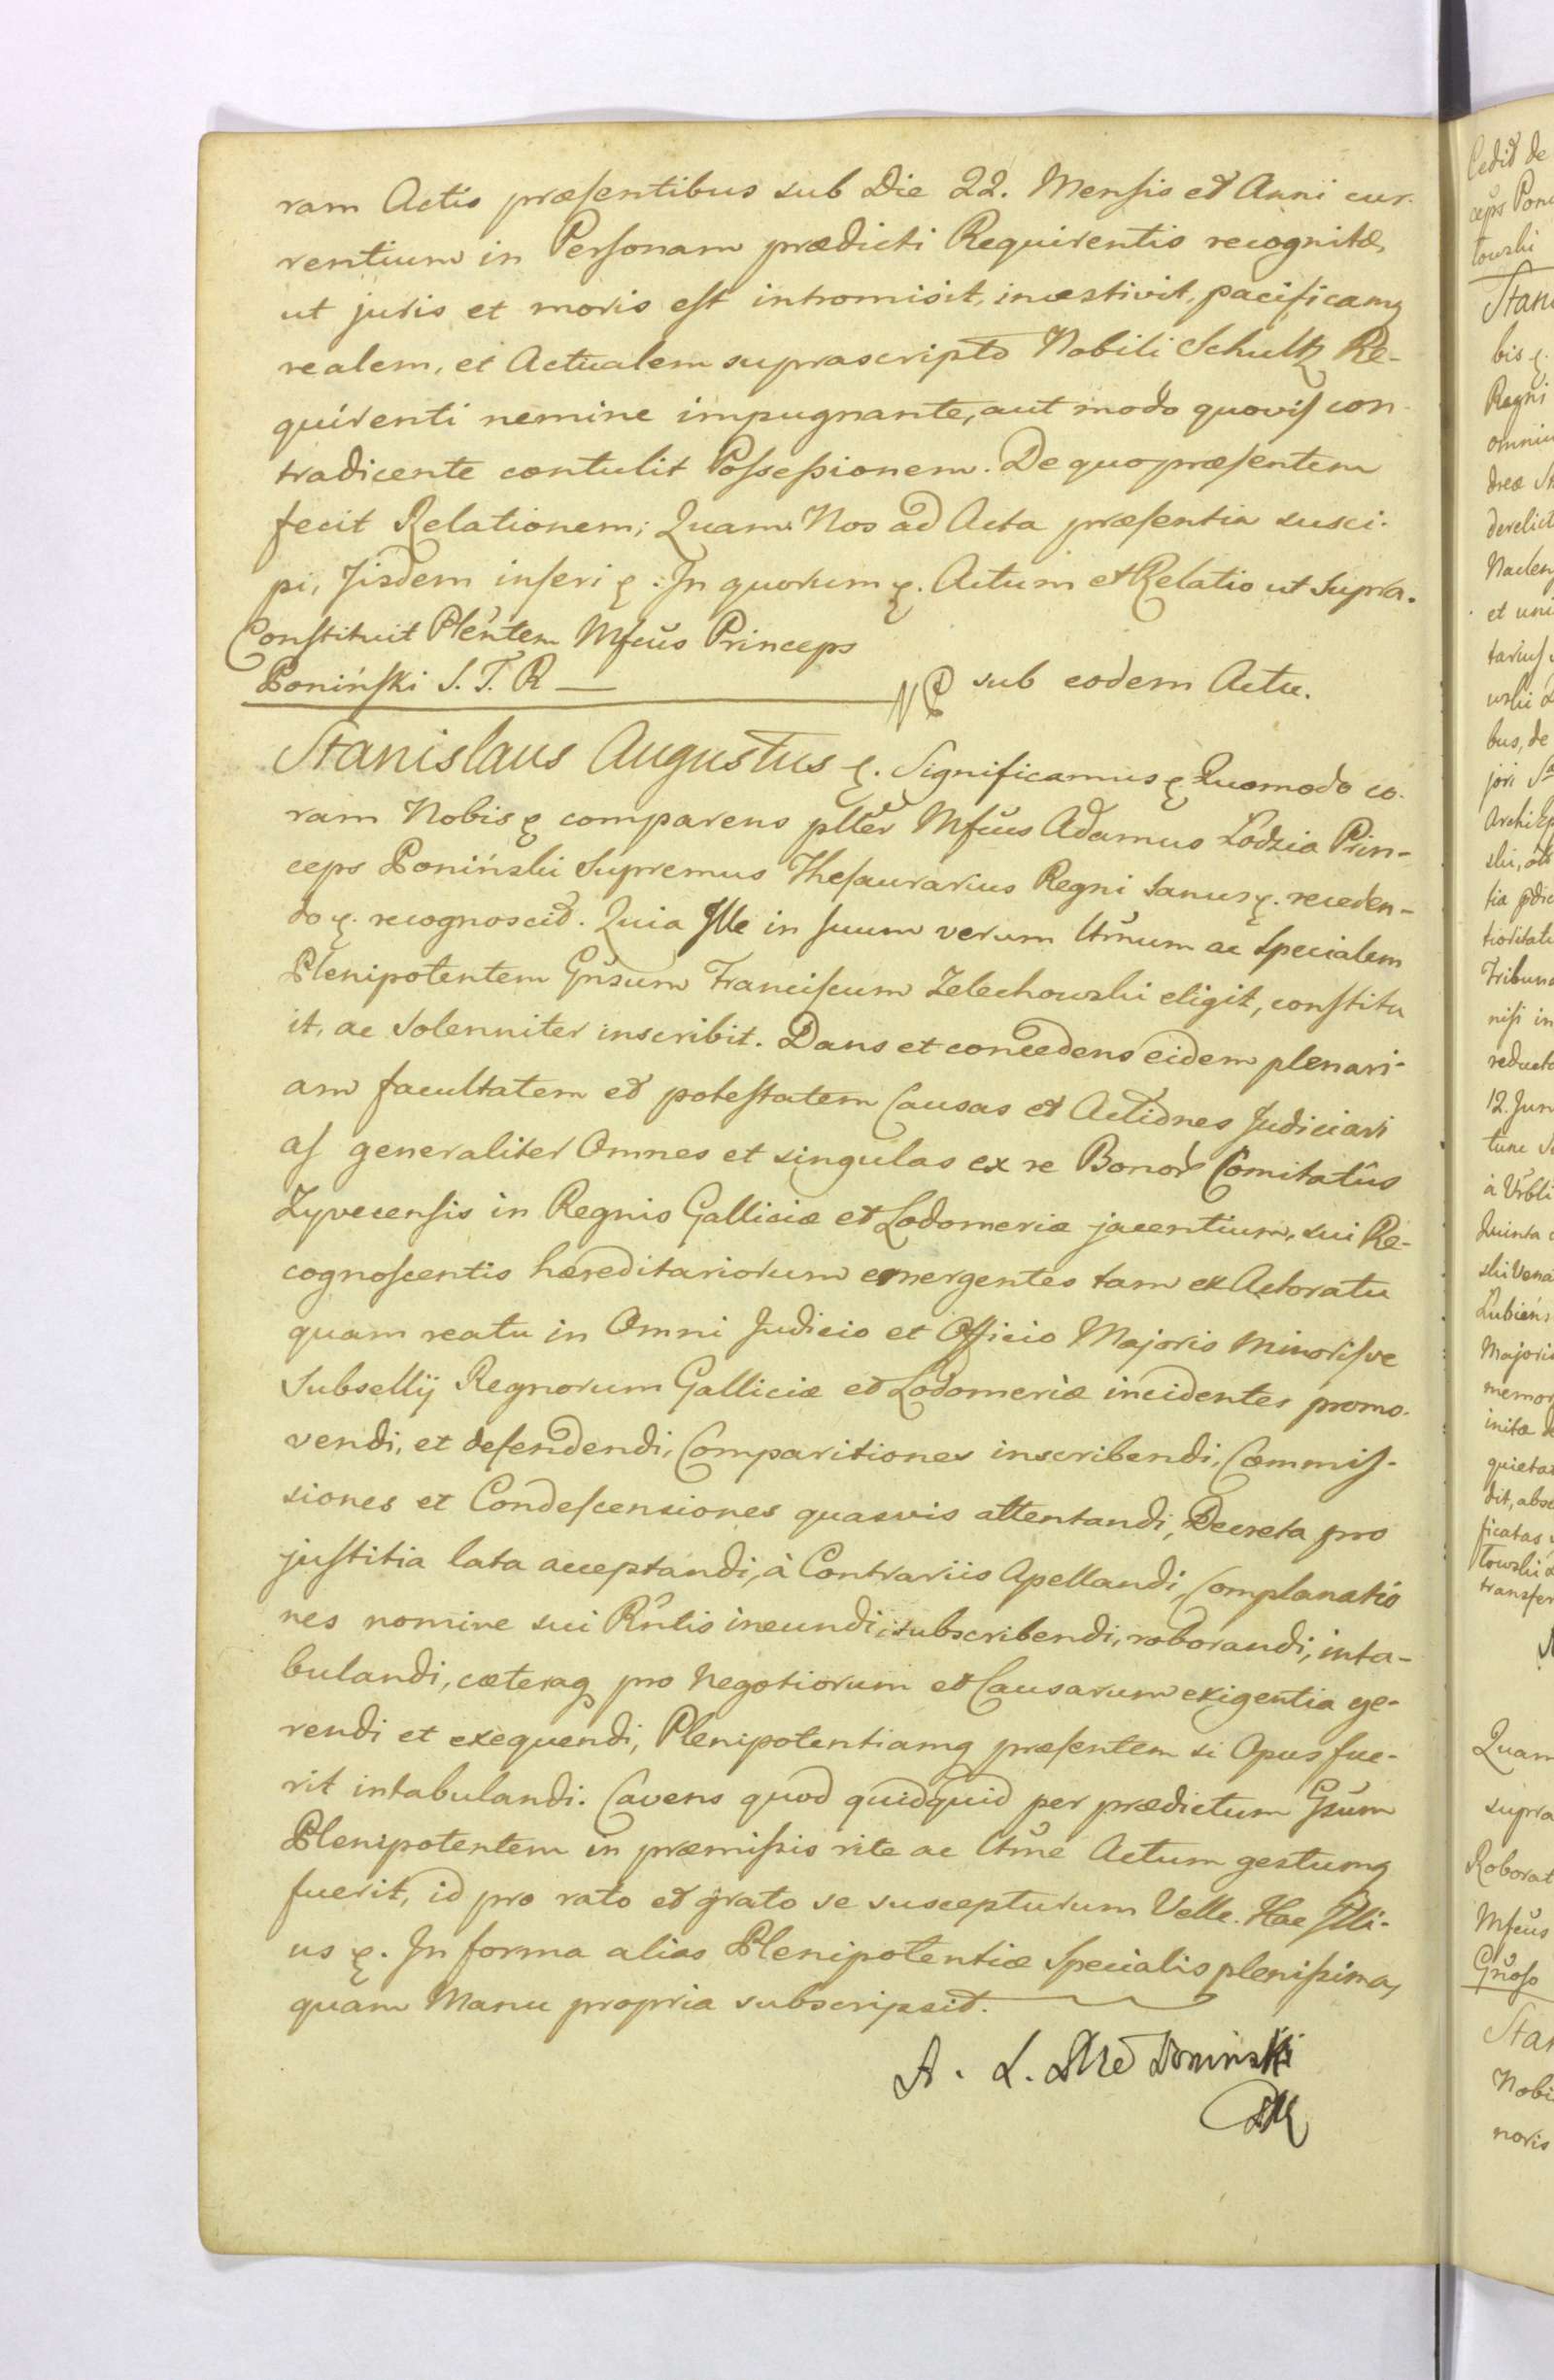 ram Actis præsentibus sub Die 22. Mensis et Anni cur-
rentium in Personam prædicti Requirentis recognitæ,
ut juris et moris est intromisit, investivit, pacificamq
realem, et Actualem suprascripto Nobili Schultz Re-
quirenti nemine impugnante, aut modo quovis con-
tradicente contulit Possessionem. De quo præsentem
fecit Relationem; Quam Nos ad Acta præsentia susci-
pi, Iisdem inseri &. In quorum &. Actum et Relatio ut Supra.
Constituit Pleñtem Mfcus Princeps
Poniński S. T. R
sub eodem Actu.
Stanislaus Augustus &. Significamus & Quomodo co-
ram Nobis & comparens plter Mfcus Adamus Lodzia Prin-
ceps Poniński Supremus Thesaurarius Regni Sanus &. receden-
do &. recognoscit. Quia Ille in suum verum ltmum ac specialem
Plenipotentem Gnsum Franciscum Zelechowski eligit, constitu
it, ac Solenniter inscribit. Dans et concedens eidem plenari-
am facultatem et potestatem Causas et Actiones Judiciari
as generaliter Omnes et singulas ex re Bonor Comitatûs
Zyvecensis in Regnis Galliciæ et Lodomeriæ jacentium, sui Re-
cognoscentis hæreditariorum emergentes tam ex Actoratu
quam reatu in Omni Judicio et Officio Majoris Minorisve
Subsellij Regnorum Galliciæ et Lodomeriæ incidentes promo-
vendi, et defendendi, Comparitiones inscribendi, Commis-
siones et Condescensiones quasvis attentandi, Decreta pro
justitia lata acceptandi, à Contrariis Apellandi, Complanatio
nes nomine sui Rñtis ineundi, subscribendi, roborandi, inta-
bulandi, cæteraq pro Negotiorum et Causarum exigentia ge-
rendi et exequendi, Plenipotentiamq præsentem si Opus fue-
rit intabulandi. Cavens quod quidquid per prædictum Gsum
Plenipotentem in præmissis rite ac ltme Actum gestumq
fuerit, id pro rato et grato se suscepturum Velle. Hac Illi-
us &. In forma alias Plenipotentiæ Specialis plenissima,
quam Manu propria subscripsit.
A. L. Poninski
Cedit de
ceps Pon
towski
Stan
bis &.
Regni
omniu
dreæ
derelict
Naclen
et uni
tarius
wski
bus, de
jori
Archi Ep
ski,
tia
tioritat
Tribuna
nisi in
reducta
12. Jun
tunc
à Urbli
Quinta
ski Vena
Łubień
Majoris
memor
initæ
quieta
dit, abs
ficatas
towski
transfer
Quam
supra
Roborat
Mfcus
Gnoso
Stan
Nobi
noris